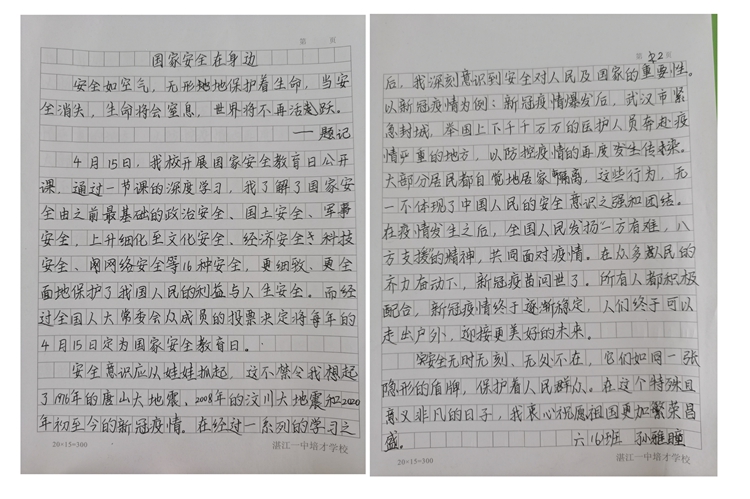 第 页
国家安全在身边
安全如空气，无形地地保护着生命，当安
全消失，生命将会窒息，世界将不再活跃。
——题记
4月15日，我校开展国家安全教育日公开
课，通过一节课的深度学习，我了解了国家安
全由之前最基础的政治安全、国土安全、军事
安全，上升细化至文化安全、经济安全、科技
安全、网络安全等16种安全，更细致、更全
面地保护了我国人民的利益与人生安全。而经
过全国人大常委会众成员的投票决定将每年的
4月15日定为国家安全教育日。
安全意识应从娃娃抓起，这不禁令我想起
了1976年的唐山大地震、2008年的汶川大地震和2020
年初至今的新冠疫情。在经过一系列的学习之
20×15=300
湛江一中培才学校
第 2 页
后，我深刻意识到安全对人民及国家的重要性。
以新冠疫情为例：新冠疫情爆发后，武汉市紧
急封城，举国上下千千万万的医护人员奔赴疫
情严重的地方，以防控疫情的再度发生传染。
大部分居民都自觉地居家隔离，这些行为，无
一不体现了中国人民的安全意识之强和团结。
在疫情发生之后，全国人民发扬“一方有难，八
方支援”的精神，共同面对疫情。在众多人民的
齐力奋动下，新冠疫苗问世了。所有人都积极
配合，新冠疫情终于逐渐稳定，人们终于可以
走出户外，迎接更美好的未来。
安全无时无刻、无处不在，它们如同一张
隐形的盾牌，保护着人民群众。在这个特殊且
意义非凡的日子，我衷心祝愿祖国更加繁荣昌
盛。 六16班 孙雅瞳
20×15=300
湛江一中培才学校